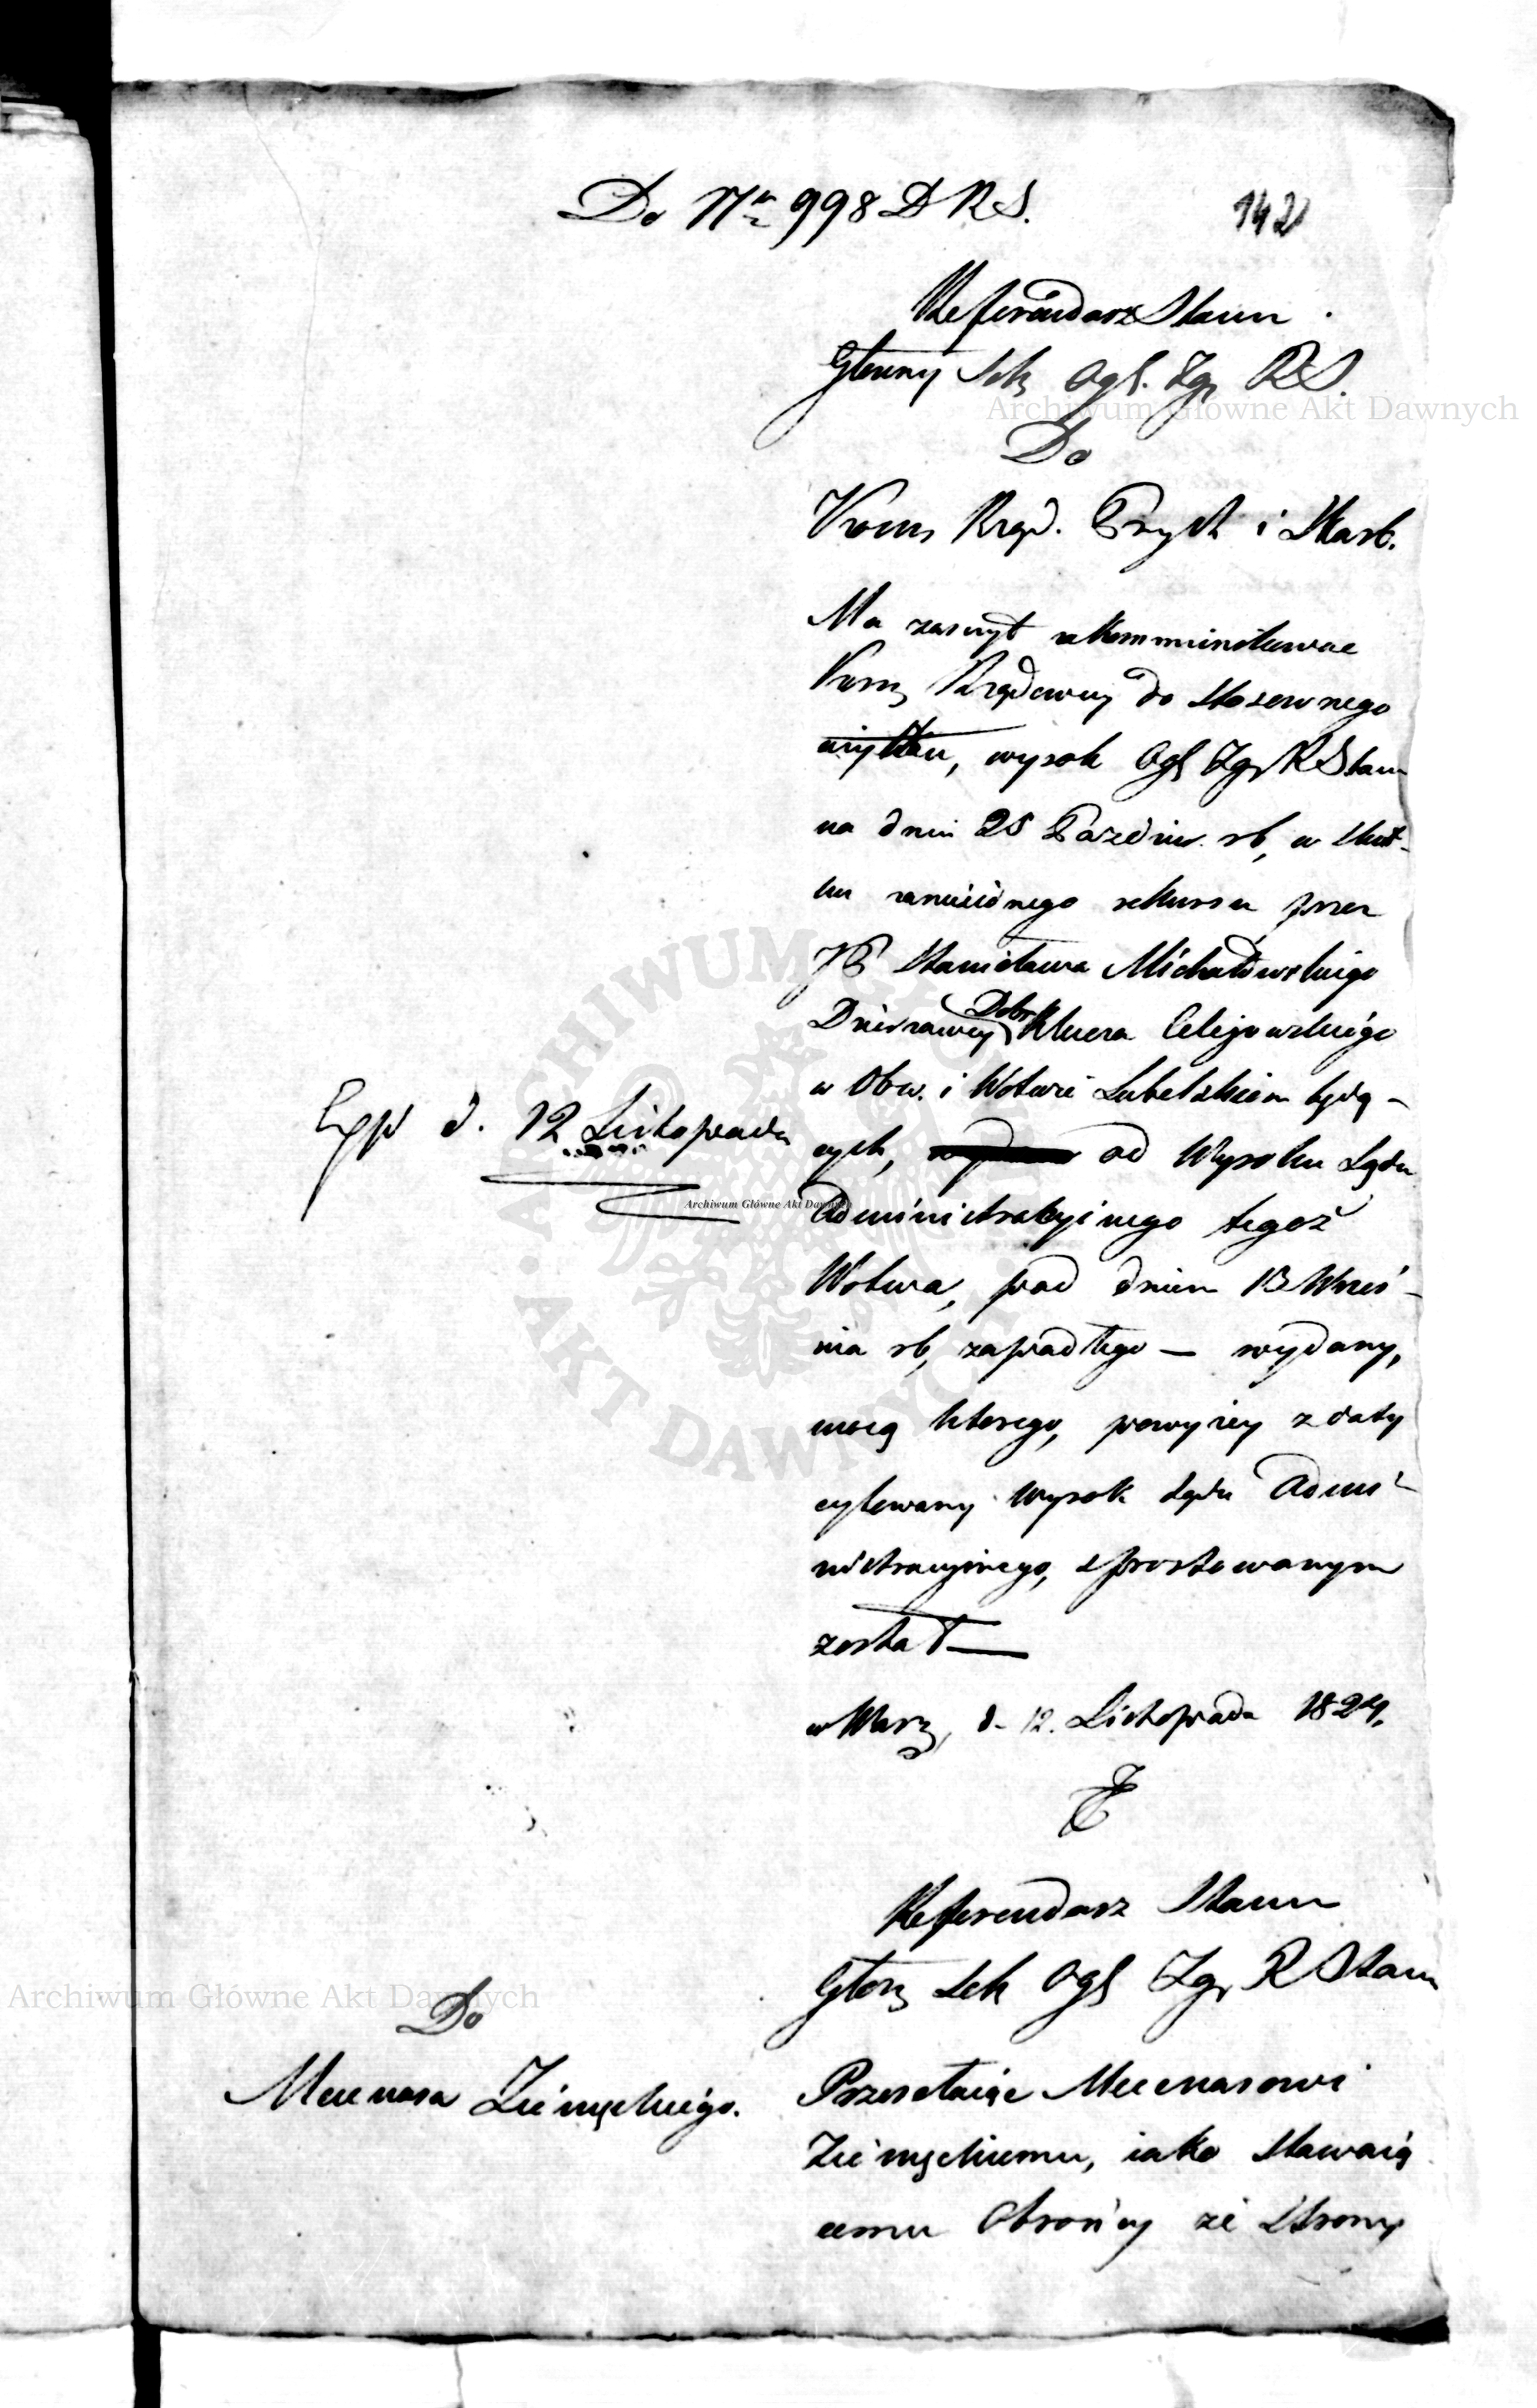 Do Nru 998 D R S.
142
Referendarz Stanu
Główny Sek Ogl. Zgr RS.
Do
Kom Rząd. Przych i Skarb.
Ma zaszczyt zakommunikować
Kom Rządowey do stosownego
użytku, wyrok Ogl Zgr R Stanu
na dniu 28 Paździer. rb, w skut-
ku zaniesionego rekursu przez
JP Stanisława Michałowskiego
Dzierzawcy Dobr Klucza Celejowskiego
w Obw. i Wotwie Lubelskiem będą-
cych, od Wyroku Sądu
Administracyjnego tegoż
Wotwa, pod dniem 13 Wrześ-
nia rb, zapadłego — wydany,
mocą którego, powyżey z daty
cytowany Wyrok Sądu Admi-
nistracyjnego, sprostowanym
został —
w Warz, d. 12. Listopada 1824.
Exp d. 12 Listopada
Referendarz Stanu
Głony Sek Ogl Zgr R Stanu
Do
Mecenasa Ziemęckiego.
Przesełaiąc Mecenasowi
Ziemęckiemu, iako stawaią
cemu Obrońcy ze strony
Archiwum Główne Akt Dawnych
Archiwum Główne Akt Dawnych
Archiwum Główne Akt Dawnych